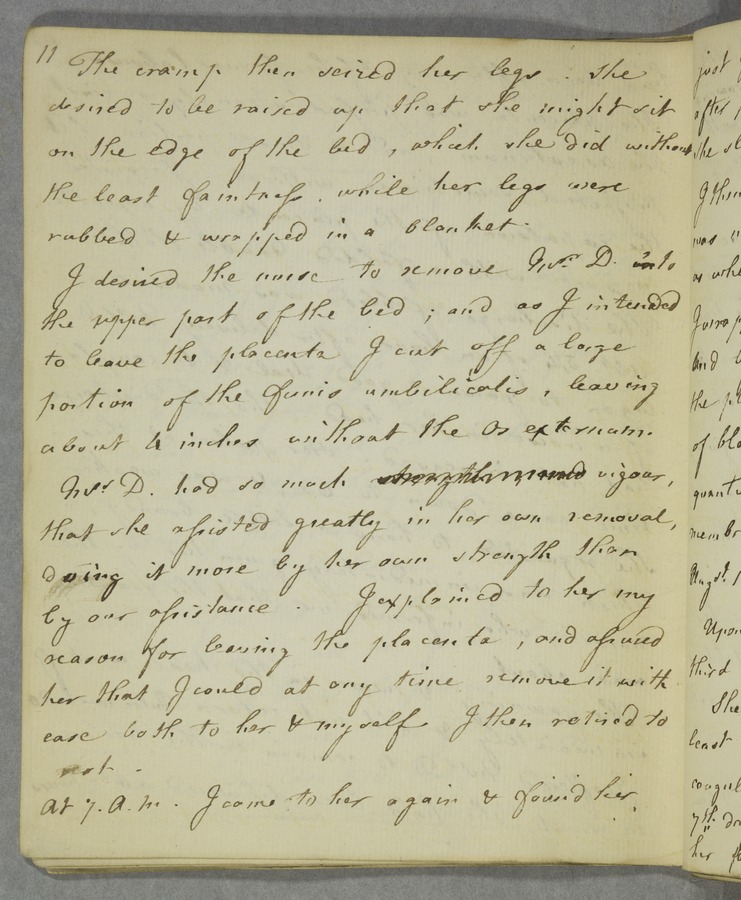 11
The cramp then seized her legs. She
desired to be raised up that she might sit
on the edge of the bed, which she did without
the least faintness, while her legs were
rubbed & wrapped in a blanket.
I desired the nurse to remove Mrs. D. into
the upper part of the bed; and as I intended
to leave the placenta I cut off a large
portion of the funis umbilicalis, leaving
about 4 inches without the Os externum.
Mrs. D. had so much vigour,
that she assisted greatly in her own removal,
doing it more by her own strength than
by our assistance. I explained to her my
reason for leaving the placenta, and assured
her that I could at any time remove it with
ease both to her & myself. I then retired to
rest.
At 7. A.M. I came to her again & found her
just
after
she
was
third
She
least
7th
her